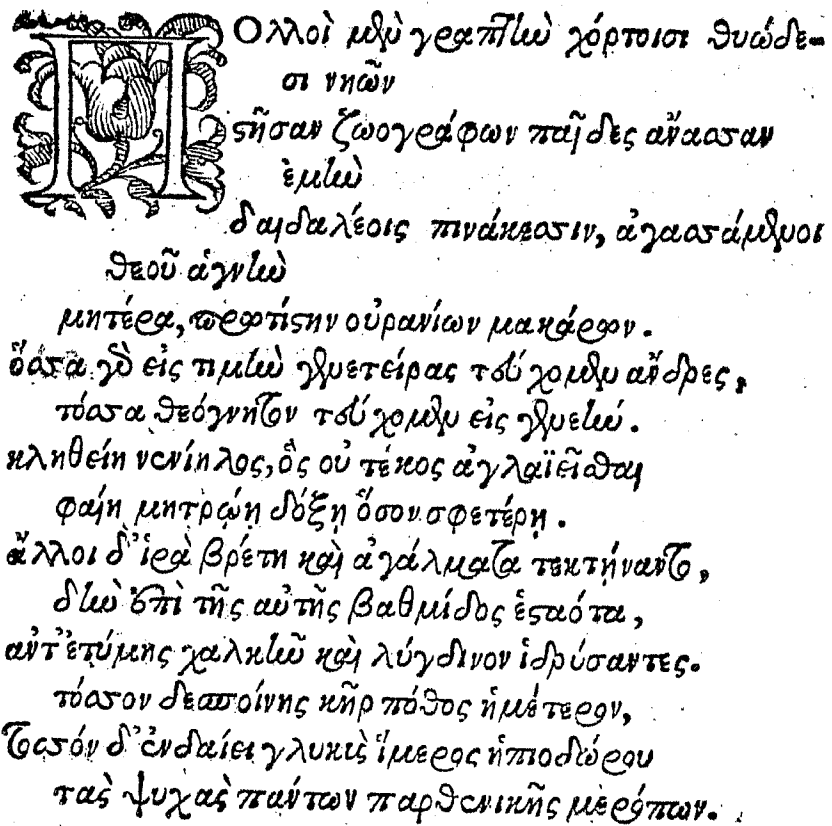 Πολλοὶ μὲν γραπτὴν χόρτοισι θυώδε-
σι νηῶν
στῆσαν ζωογράφων παῖδες ἄνασσαν
ἐμὴν
δαιδαλέοις πινάκεσσιν, ἀγασσάμενοι
θεοῦ ἁγνὴν
μητέρα, πρωτίστην οὐρανίων μακάρων.
ὅσσα γὰρ εἰς τιμὴν γενετείρας τεύχομεν ἄνδρες,
τόσσα θεόγνητον τεύχομεν εἰς γενετήν.
κληθείη νενίηλος, ὃς οὐ τέκος ἀγλαϊεῖσθαι
φαίη μητρῴη δόξῃ ὅσον σφετέρῃ.
ἄλλοι δ' ἱρὰ βρέτη καὶ ἀγάλματα τεκτήναντο,
δὴν ἐπὶ τῆς αὐτῆς βαθμίδος ἑσταότα,
αὐτ' ἐτύμης χαλκῆν καὶ λύγδινον ἱδρύσαντες.
τόσσον δεσποίνης κῆρ πόθος ἡμέτερον,
τοσσόν δ' ἐνδαίει γλυκὺς ἵμερος ἠπιοδώρου
τὰς ψυχὰς πάντων παρθενικῆς μερόπων.